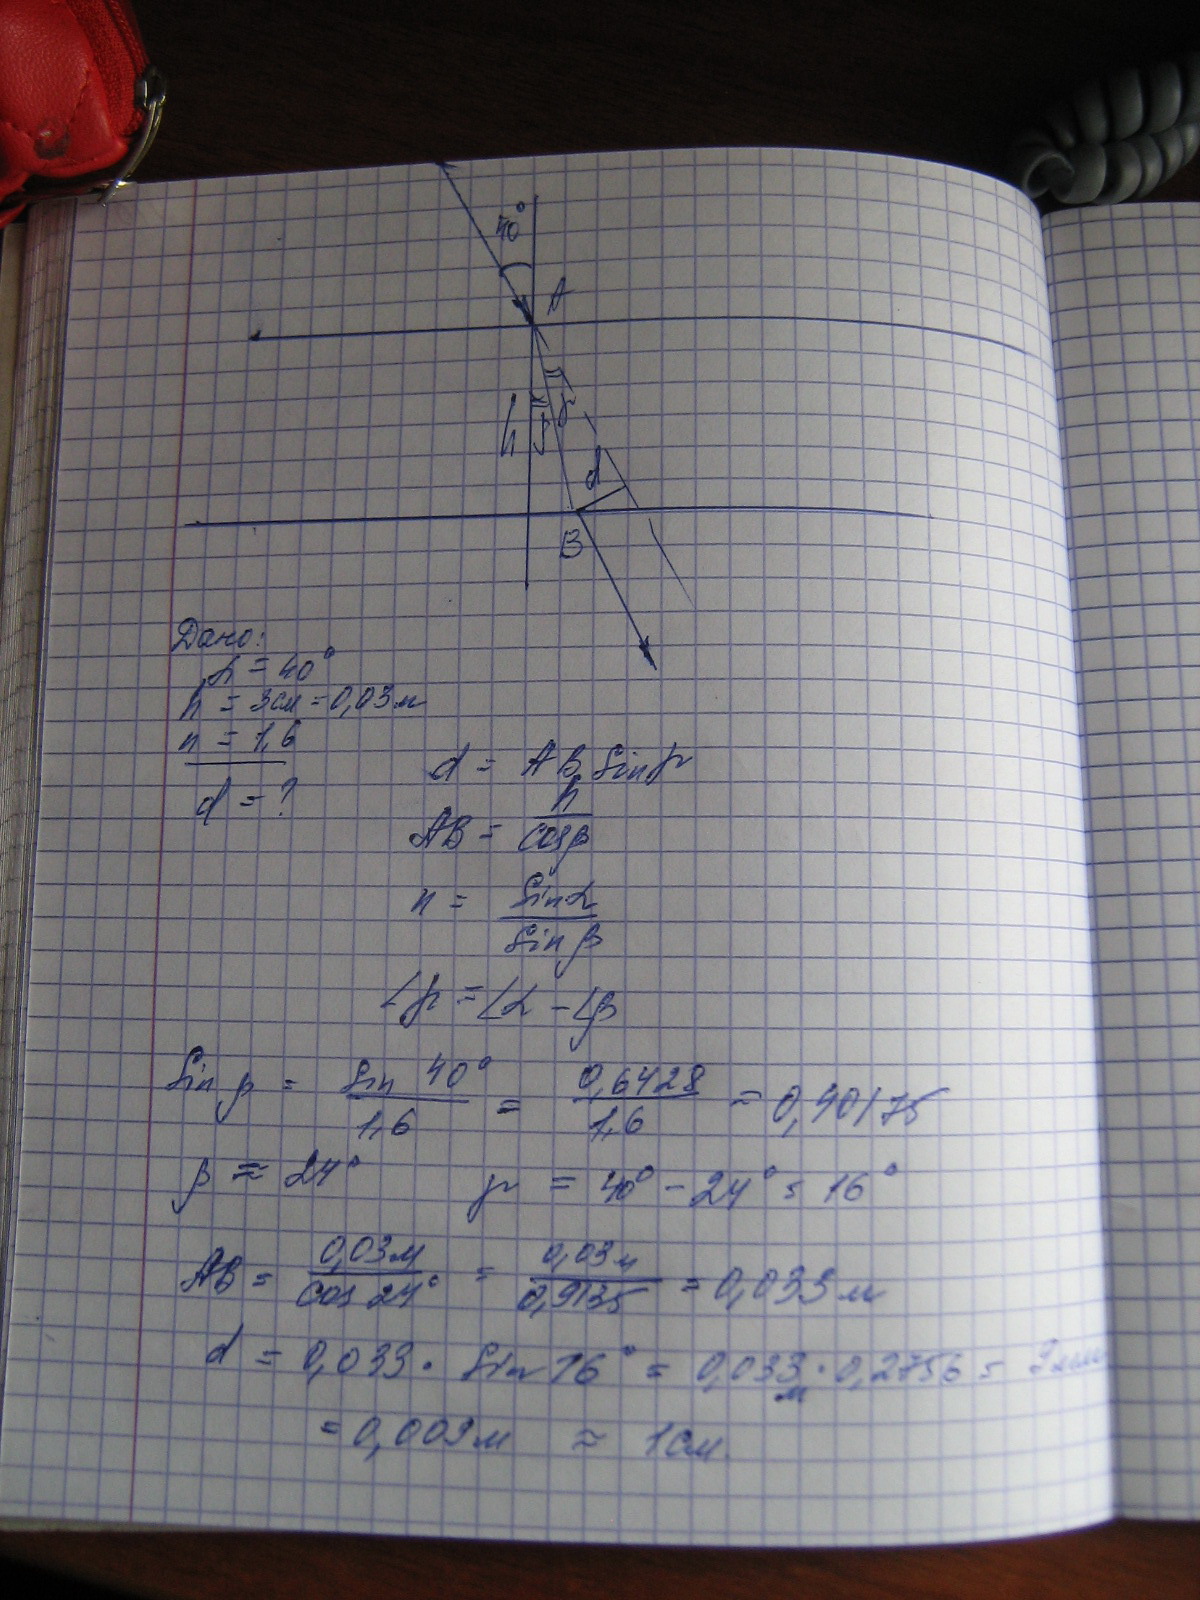 40°
A
h β γ
d
B
Дано:
α = 40°
h = 3см = 0,03м
n = 1,6
d = ?
d = AB sin γ
AB = h / cos β
n = sin α / sin β
∠γ = ∠α − ∠β
sin β = sin 40° / 1,6 = 0,6428 / 1,6 ≈ 0,40175
β ≈ 24° γ = 40° − 24° = 16°
AB = 0,03м / cos 24° = 0,03м / 0,9135 = 0,033м
d = 0,033 · sin 16° = 0,033м · 0,2756 =
= 0,009м ≈ 1см.